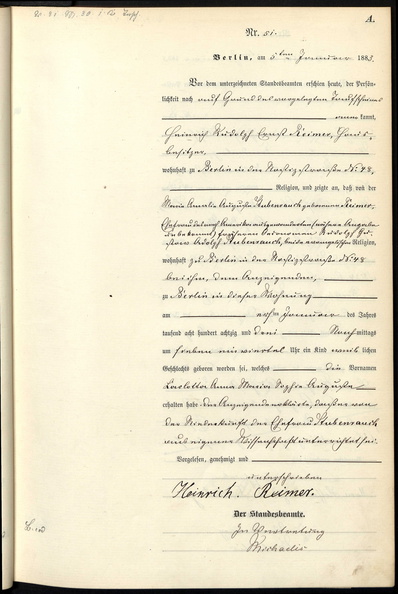 A.
Nr. 51.
Berlin, am 5ten Januar 1883.
Vor dem unterzeichneten Standesbeamten erschien heute, der Persön-
lichkeit nach auf Grund des vorgelegten Taufscheins
kannt,
Heinrich Rudolph Ernst Reimer, Haus-
besitzer,
wohnhaft zu Berlin in der Nostizstraße No 48,
Religion, und zeigte an, daß von der
Maria Amalie Auguste Stubenrauch geborene Reimer,
Ehefrau des nach Amerika
Adolph Stubenrauch, beide evangelischer Religion,
wohnhaft zu Berlin in der Nostizstraße No 48
bei ihm, dem Anzeigenden,
zu Berlin in dieser Wohnung
am Januar des Jahres
tausend acht hundert achtzig und drei Nachmittags
um sieben ein viertel Uhr ein Kind weiblichen
Geschlechts geboren worden sei, welches die Vornamen
Anna Maria Sophie Auguste
erhalten habe. Der Anzeigende erklärte, daß er von
der Niederkunft der Ehefrau Stubenrauch
aus eigener Wissenschaft unterrichtet sei.
Vorgelesen, genehmigt und
unterschrieben
Heinrich Reimer.
Der Standesbeamte.
In Vertretung
Michaelis